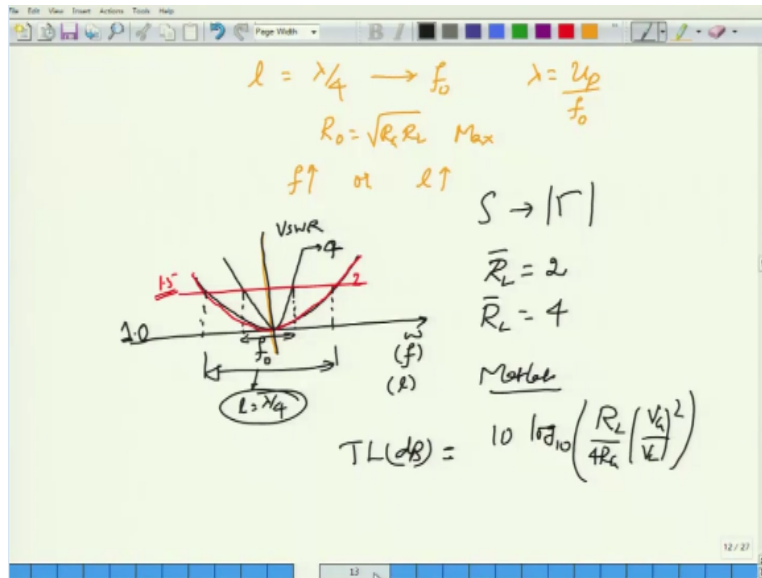 File Edit View Insert Actions Tools Help
Page Width
l = λ/4 → f₀ λ = u_p/f₀
R₀ = √(R_s R_L) Max
f↑ or l↑
S → |Γ|
VSWR
4
1.5
2
R̄_L = 2
R̄_L = 4
1.0
f₀
ω
(f)
(l)
l = λ/4
Matlab
TL(dB) = 10 log₁₀(R_L/4R_G (V_G/V_L)²)
12 / 27
13